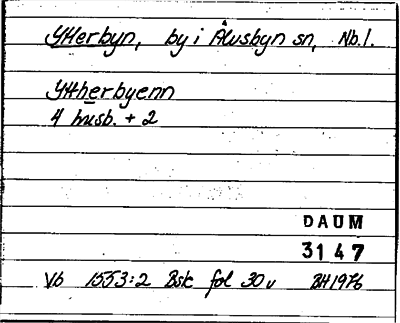 Ytterbyn, by i Älvsbyn sn, Nb.l.
Yttherbyenn
4 husb. + 2
DAUM
3147
Vb 1553:2 Bsk fol 30v BH 1976